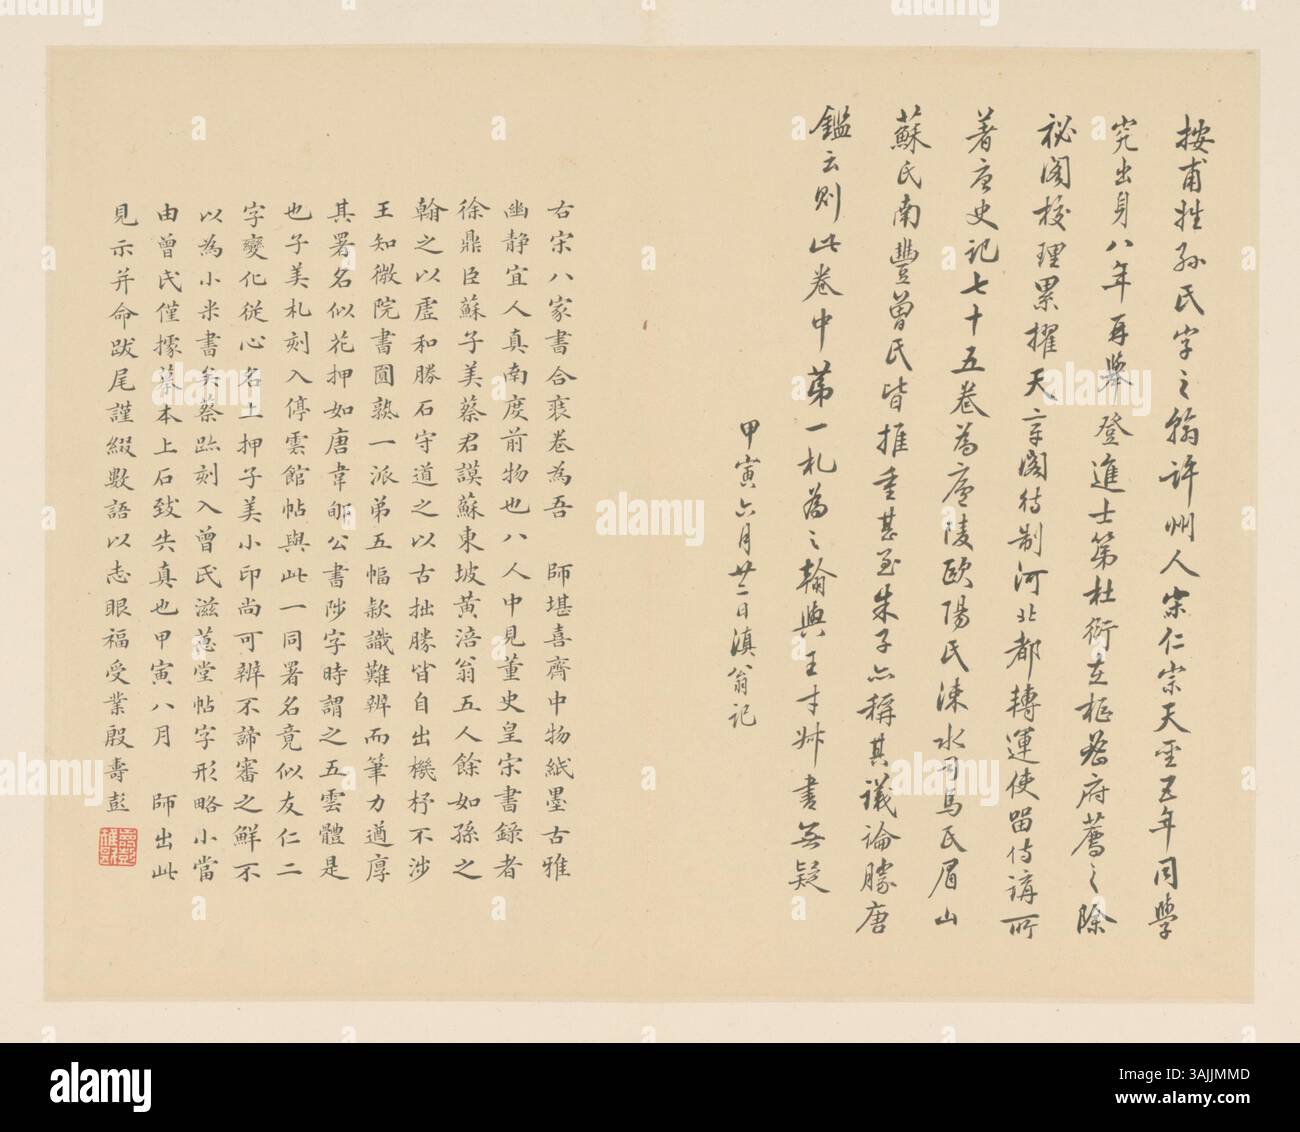 按甫姓孫氏字之翰許州人宋仁宗天聖五年同學
究出身八年再舉登進士第杜衍在樞密府薦之除
祕閣校理累擢天章閣待制河北都轉運使留侍講所
著唐史記七十五卷為廬陵歐陽氏涑水司馬氏眉山
蘇氏南豐曾氏皆推重甚至朱子亦稱其議論勝唐
鑑云則此卷中第一札為之翰與王才叔書無疑
甲寅六月廿二日滇翁記
右宋八家書合裝卷為吾 師堪喜齊中物紙墨古雅
幽静宜人真南度前物也八人中見董史皇宋書錄者
徐鼎臣蘇子美蔡君謨蘇東坡黃涪翁五人餘如孫之
翰之以虛和勝石守道之以古拙勝皆自出機杼不涉
王知微院書圓熟一派弟五幅款識難辨而筆力遒厚
其署名似花押如唐韋郇公書陟字時謂之五雲體是
也子美札刻入停雲館帖與此一同署名竟似友仁二
字變化從心名上押子美小印尚可辨不諦審之鮮不
以為小米書矣蔡跡刻入曾氏滋蕙堂帖字形略小當
由曾氏僅據摹本上石致失真也甲寅八月 師出此
見示并命跋尾謹綴數語以志眼福受業殷壽彭
alamy
Image ID: 3AJJMMD
www.alamy.com